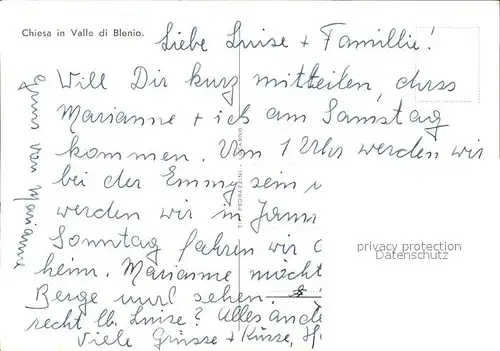 Chiesa in Valle di Blenio.
Liebe Luise + Famillie!
Will Dir kurz mitteilen, dass
Marianne + ich am Samstag
kommen. Um 1 Uhr werden wir
bei der Emmy sein
werden wir in
Sonntag fahren wir
heim. Marianne möcht
Berge und sehen.
recht lb. Luise? Alles
Viele Grüsse + Küsse,
von Marianne
TIP. PEDRAZZINI - LOCARNO
privacy protection
Datenschutz